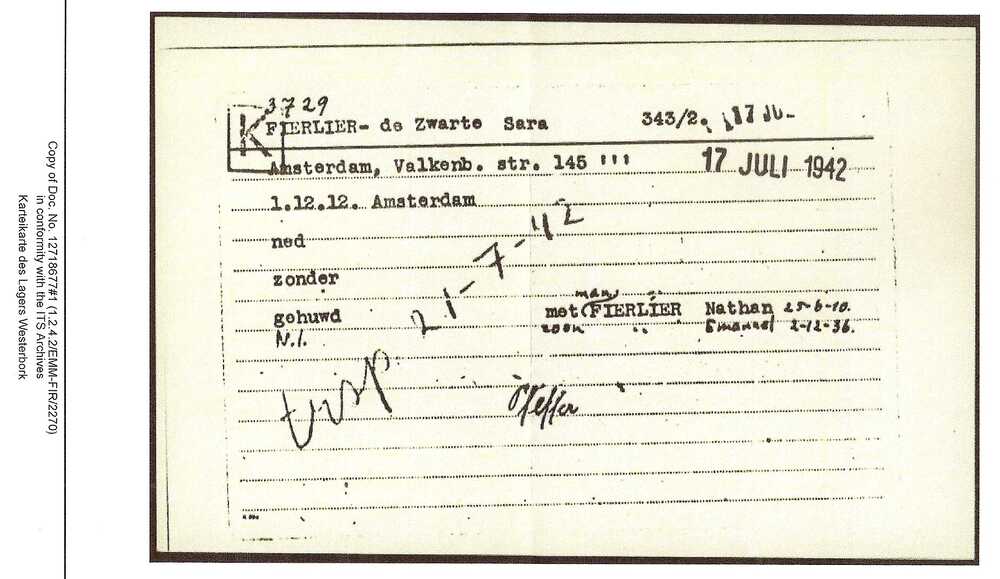 3729
K FIERLIER- de Zwarte Sara 343/2. 17 JU-
Amsterdam, Valkenb. str. 145 !!!
17 JULI 1942
1.12.12. Amsterdam
ned
zonder
gehuwd met man FIERLIER Nathan 25-6-10.
N.I. zoon " Emanuel 2-12-36.
trsp. 21-7-42
Pfeffer
Copy of Doc. No. 12718677#1 (1.2.4.2/EMM-FIR/2270)
in conformity with the ITS Archives
Karteikarte des Lagers Westerbork